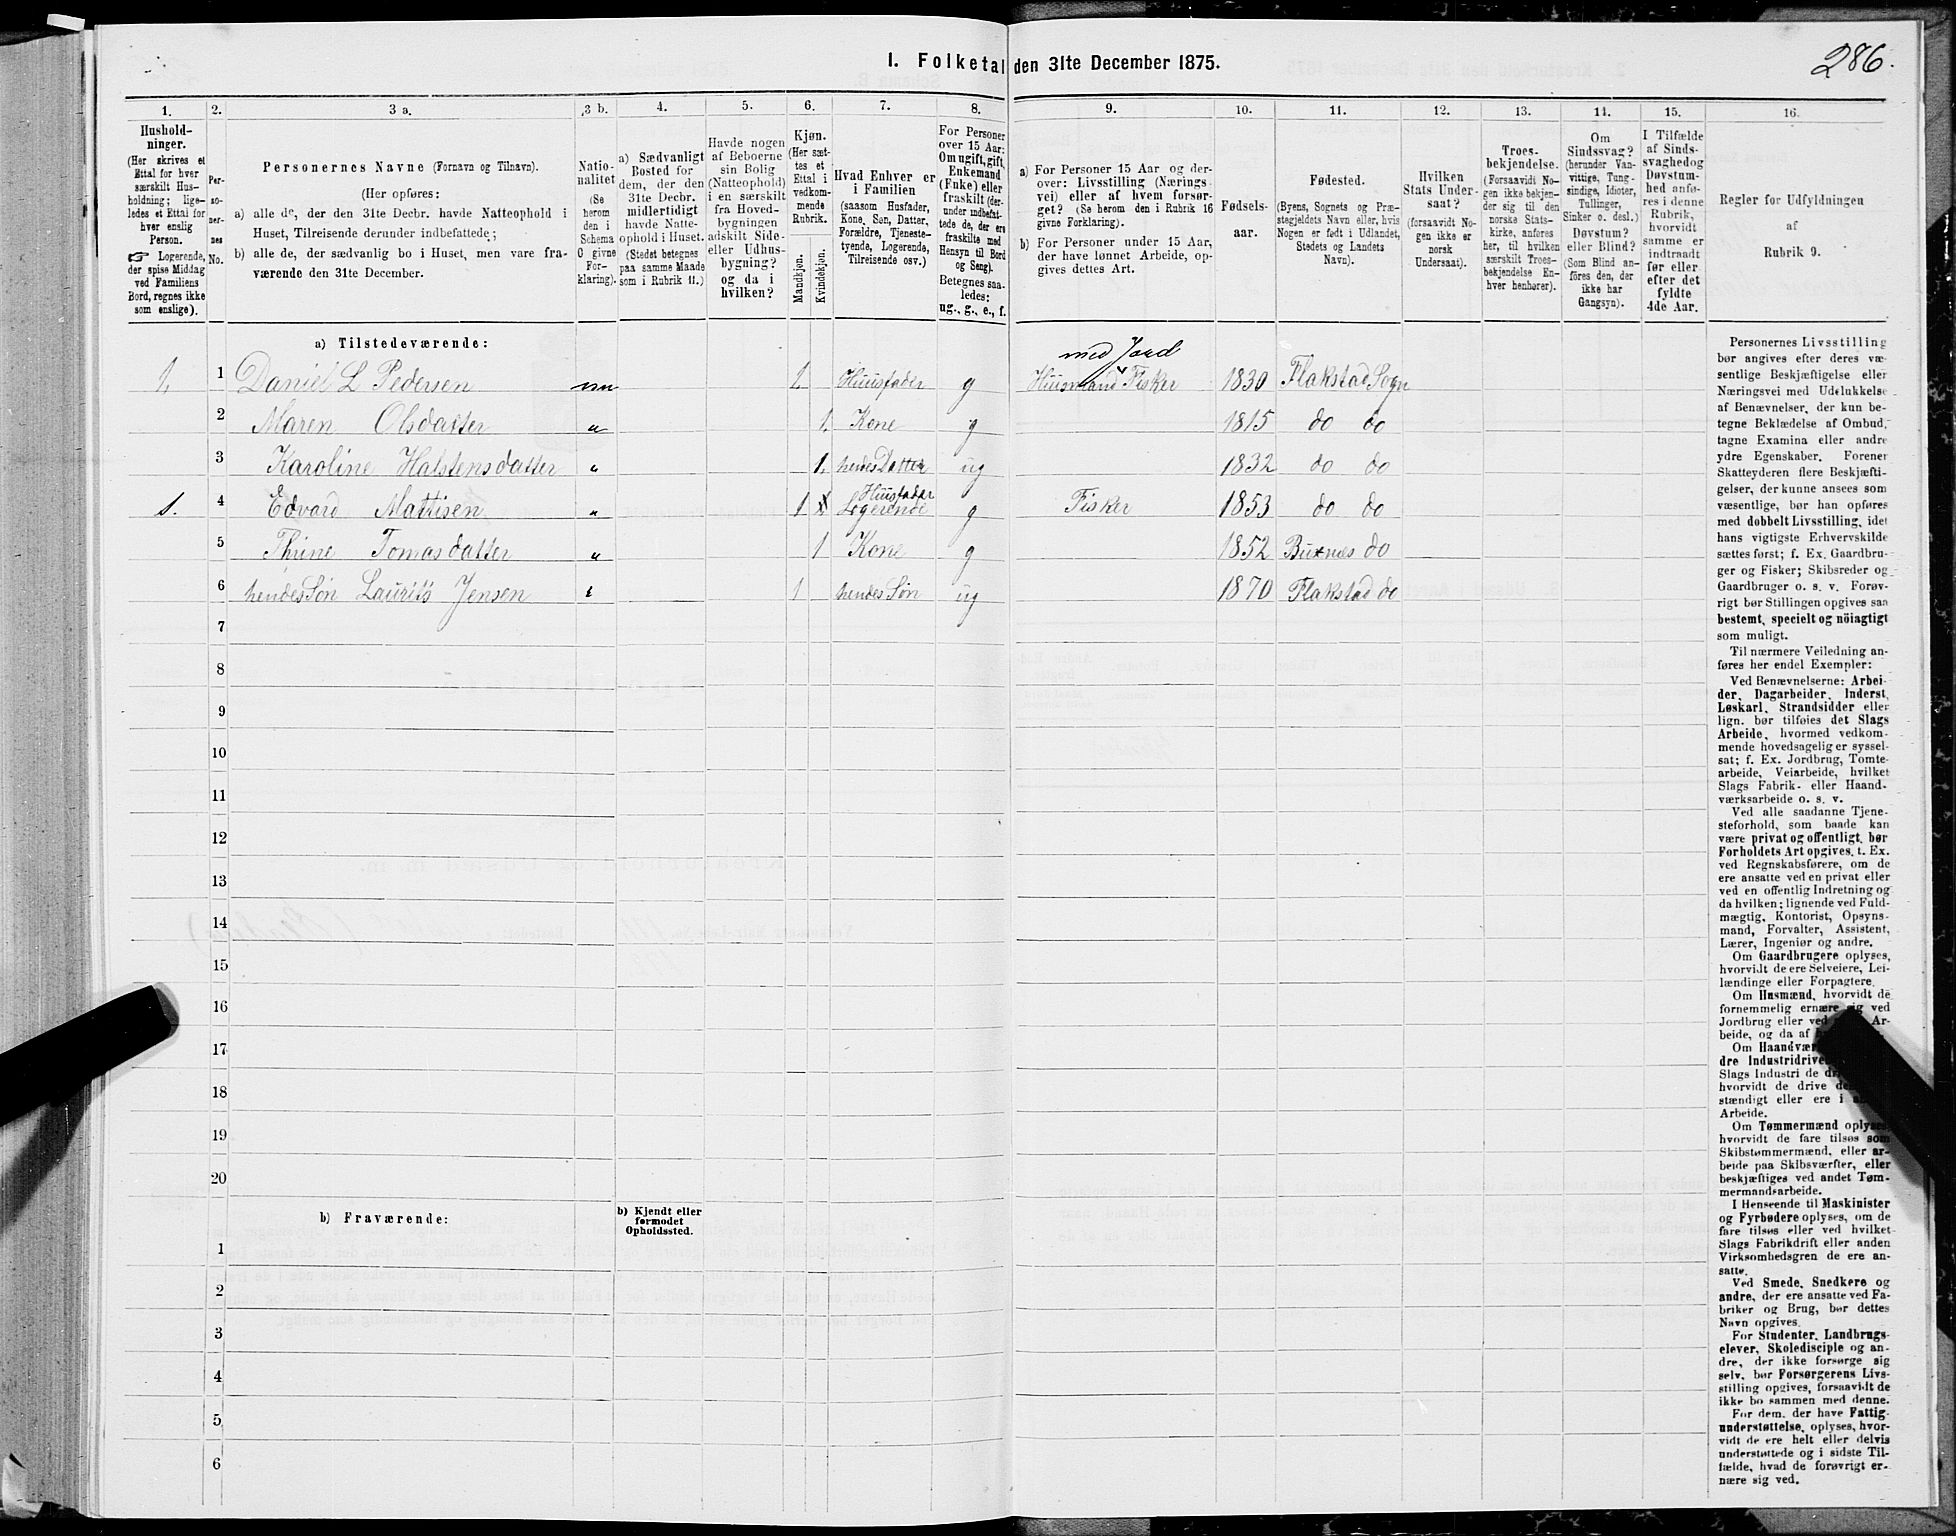 286.
I. Folketal den 31te December 1875.
1. 2. 3 a. 3 b. 4. 5. 6. 7. 8. 9. 10. 11. 12. 13. 14. 15. 16.
Hushold-
ninger.
(Her skrives et
Ettal for hver
særskilt Hus-
holdning; lige-
ledes et Ettal for
hver enslig
Person.
☞ Logerende,
der spise Middag
ved Familiens
Bord, regnes ikke
som enslige).
Per-
so-
ner-
nes
No.
Personernes Navne (Fornavn og Tilnavn).
(Her opføres:
a) alle de, der den 31te Decbr. havde Natteophold i
Huset, Tilreisende derunder indbefattede;
b) alle de, der sædvanlig bo i Huset, men vare fra-
værende den 31te December.
Natio-
nalitet
(Se
herom
den i
Schema
C givne
For-
klaring).
a) Sædvanligt
Bosted for
dem, der den
31te Decbr.
midlertidigt
havde Natte-
ophold i Huset.
(Stedet betegnes
paa samme Maade
som i Rubrik 11.)
Havde nogen
af Beboerne
sin Bolig
(Natteophold)
i en særskilt
fra Hoved-
bygningen
adskilt Side-
eller Udhus-
bygning?
og da i
hvilken?
Kjøn.
(Her sæt-
tes et
Ettal i
vedkom-
mende
Rubrik.
Mandkjøn.
Kvindekjøn.
Hvad Enhver er
i Familien
(saasom Husfader,
Kone, Søn, Datter,
Forældre, Tjeneste-
tyende, Logerende,
Tilreisende osv.)
For Personer
over 15 Aar:
Om ugift, gift,
Enkemand
(Enke) eller
fraskilt (der-
under indbefat-
tede de, der ere
fraskilte med
Hensyn til Bord
og Seng).
Betegnes saa-
ledes:
ug., g., e., f.
a) For Personer 15 Aar og der-
over: Livsstilling (Nærings-
vei) eller af hvem forsør-
get? (Se herom den i Rubrik 16
givne Forklaring).
b) For Personer under 15 Aar,
der have lønnet Arbeide, op-
gives dettes Art.
Fødsels-
aar.
Fødested.
(Byens, Sognets og Præ-
stegjeldets Navn eller, hvis
Nogen er født i Udlandet,
Stedets og Landets
Navn).
Hvilken
Stats Under-
saat?
(forsaavidt No-
gen ikke er
norsk
Undersaat).
Troes-
bekjendelse.
(Forsaavidt No-
gen ikke bekjen-
der sig til den
norske Stats-
kirke, anføres
her, til hvilken
særskilt Troes-
bekjendelse En-
hver henhører).
Om
Sindssvag?
(herunder Van-
vittige, Tung-
sindige, Idioter,
Tullinger,
Sinker o. desl.)
Døvstum?
eller Blind?
(Som Blind an-
føres den, der
ikke har
Gangsyn).
I Tilfælde
af Sinds-
svaghed og
Døvstum-
hed anfø-
res i denne
Rubrik,
hvorvidt
samme er
indtraadt
før eller
efter det
fyldte
4de Aar.
Regler for Udfyldningen
af
Rubrik 9.
a) Tilstedeværende:
med Jord
1. 1 Daniel L Pedersen nn 1 Huusfader g Huusmand Fisker 1830 Flakstad Sogn
2 Maren Olsdatter " 1. Kone g 1815 do do
3 Karoline Halstensdatter " 1. hendes Datter ug 1832 do do
Huusfader
1. 4 Edvard Mattisen " 1 Logerende g Fisker 1853 do do
5 Thrine Tomasdatter " 1 Kone g 1852 Buxnæs do
6 hendes Søn Laurits Jensen " 1 hendes Søn ug 1870 Flakstad do
7
8
9
10
11
12
13
14
15
16
17
18
19
20
b) Fraværende:
b) Kjendt eller
formodet
Opholdssted.
1
2
3
4
5
6
Personernes Livsstilling
bør angives efter deres væ-
sentlige Beskjæftigelse eller
Næringsvei med Udelukkelse
af Benævnelser, der kun be-
tegne Beklædelse af Ombud,
tagne Examina eller andre
ydre Egenskaber. Forener
Skatteyderen flere Beskjæfti-
gelser, der kunne ansees som
væsentlige, bør han opføres
med dobbelt Livsstilling, idet
hans vigtigste Erhvervskilde
sættes først; f. Ex. Gaardbru-
ger og Fisker; Skibsreder og
Gaardbruger o. s. v. Forøv-
rigt bør Stillingen opgives saa
bestemt, specielt og nöiagtigt
som muligt.
Til nærmere Veiledning an-
føres her endel Exempler:
Ved Benævnelserne: Arbei-
der, Dagarbeider, Inderst,
Løskarl, Strandsidder eller
lign. bør tilføies det Slags
Arbeide, hvormed vedkom-
mende hovedsagelig er syssel-
sat; f. Ex. Jordbrug, Tomte-
arbeide, Veiarbeide, hvilket
Slags Fabrik- eller Haand-
værksarbeide o. s. v.
Ved alle saadanne Tjene-
steforhold, som baade kan
være privat og offentligt, bør
Forholdets Art opgives, t. Ex.
ved Regnskabsførere, om de
ere ansatte ved en privat eller
ved en offentlig Indretning og
da hvilken; lignende ved Fuld-
mægtig, Kontorist, Opsyns-
mand, Forvalter, Assistent,
Lærer, Ingeniør og andre.
Om Gaardbrugere oplyses,
hvorvidt de ere Selveiere, Lei-
lændinge eller Forpagtere.
Om Husmænd, hvorvidt de
fornemmelig ernære sig ved
Jordbrug eller ved Ar-
beide, og da af
Om Haandvær
dre Industridrive
Slags Industri de
hvorvidt de drive
stændigt eller ere i
Arbeide.
Om Tømmermænd oplyses,
hvorvidt de fare tilsøs som
Skibstømmermænd, eller ar-
beide paa Skibsværfter, eller
beskjæftiges ved andet Tøm-
mermandsarbeide.
I Henseende til Maskinister
og Fyrbødere oplyses, om de
fare tilsøs eller ved hvilket
Slags Fabrikdrift eller anden
Virksomhedsgren de ere an-
satte.
Ved Smede, Snedkere og
andre, der ere ansatte ved Fa-
briker og Brug, bør dettes
Navn opgives.
For Studenter, Landbrugs-
elever, Skoledisciple og an-
dre, der ikke forsørge sig
selv, bør Forsørgerens Livs-
stilling opgives, forsaavidt de
ikke bo sammen med denne.
For dem, der have Fattig-
understøttelse, oplyses, hvor-
vidt de ere helt eller delvis
understøttede og i sidste Til-
fælde, hvad de forøvrigt er-
nære sig ved.